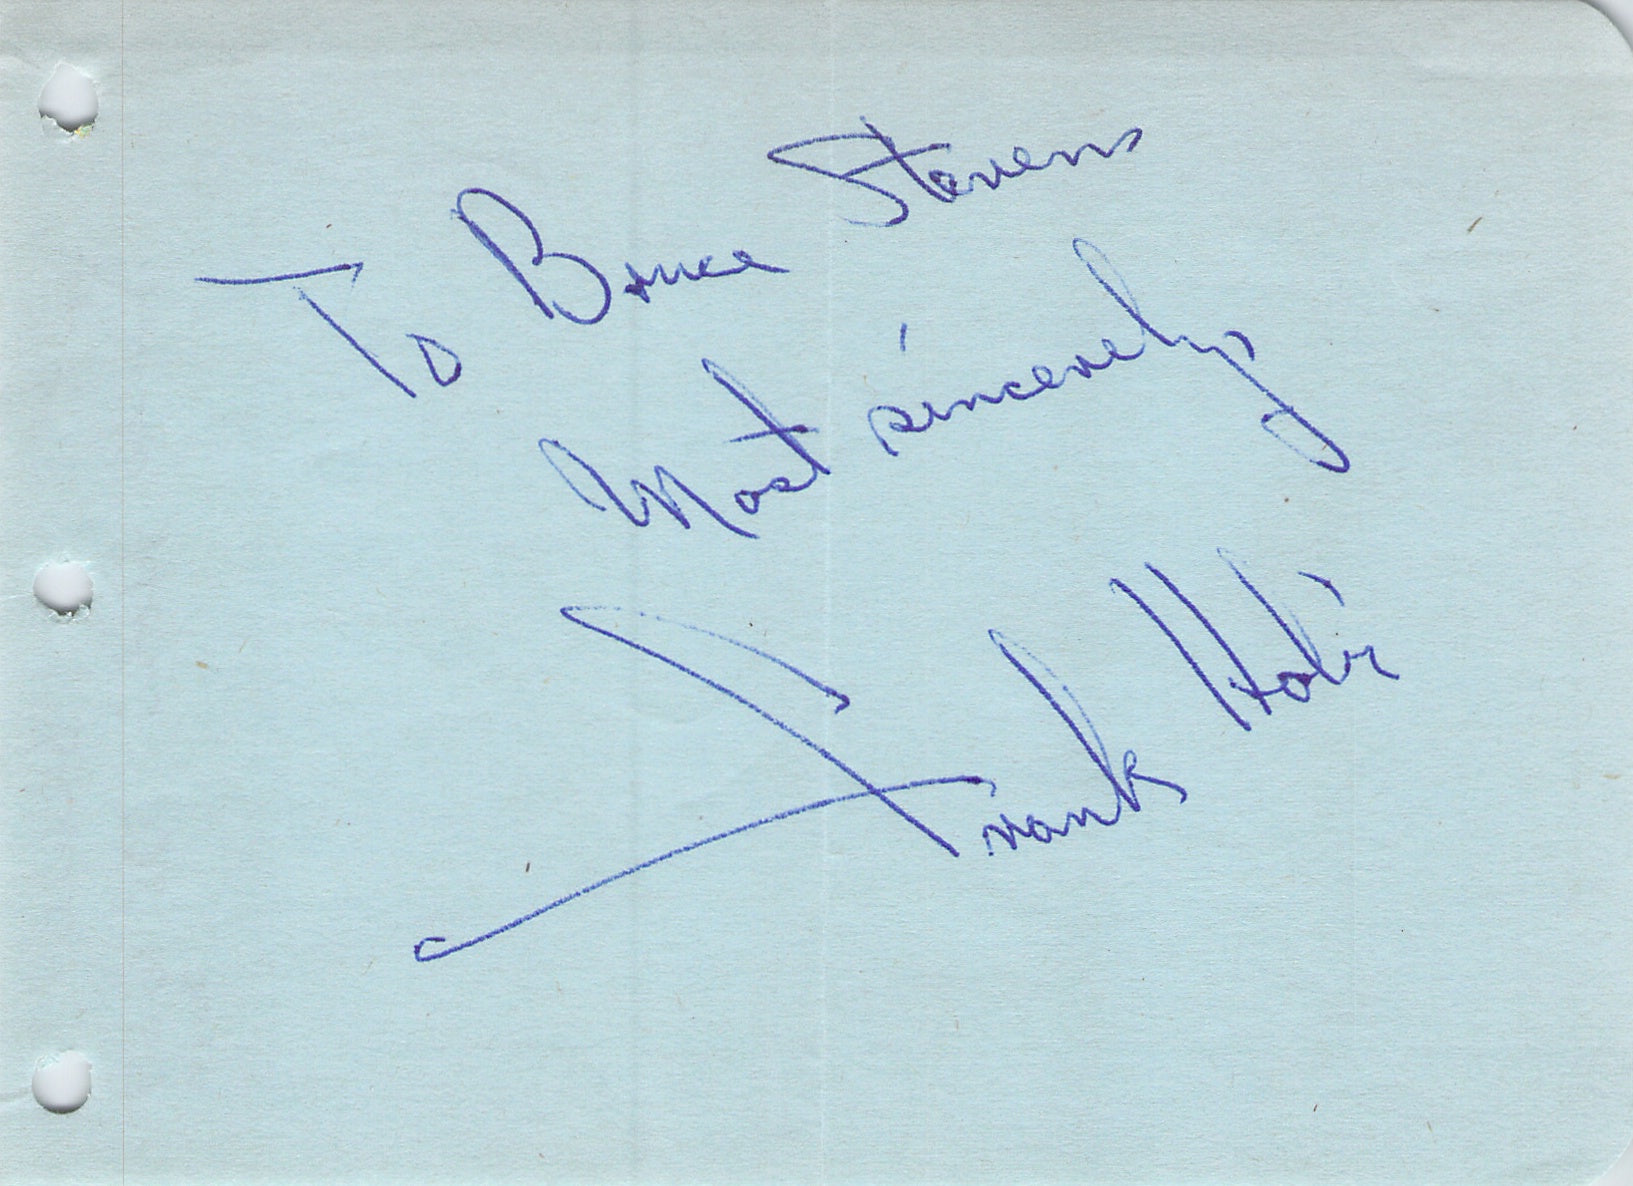 To Bruce Stevens
Most sincerely,
Frank